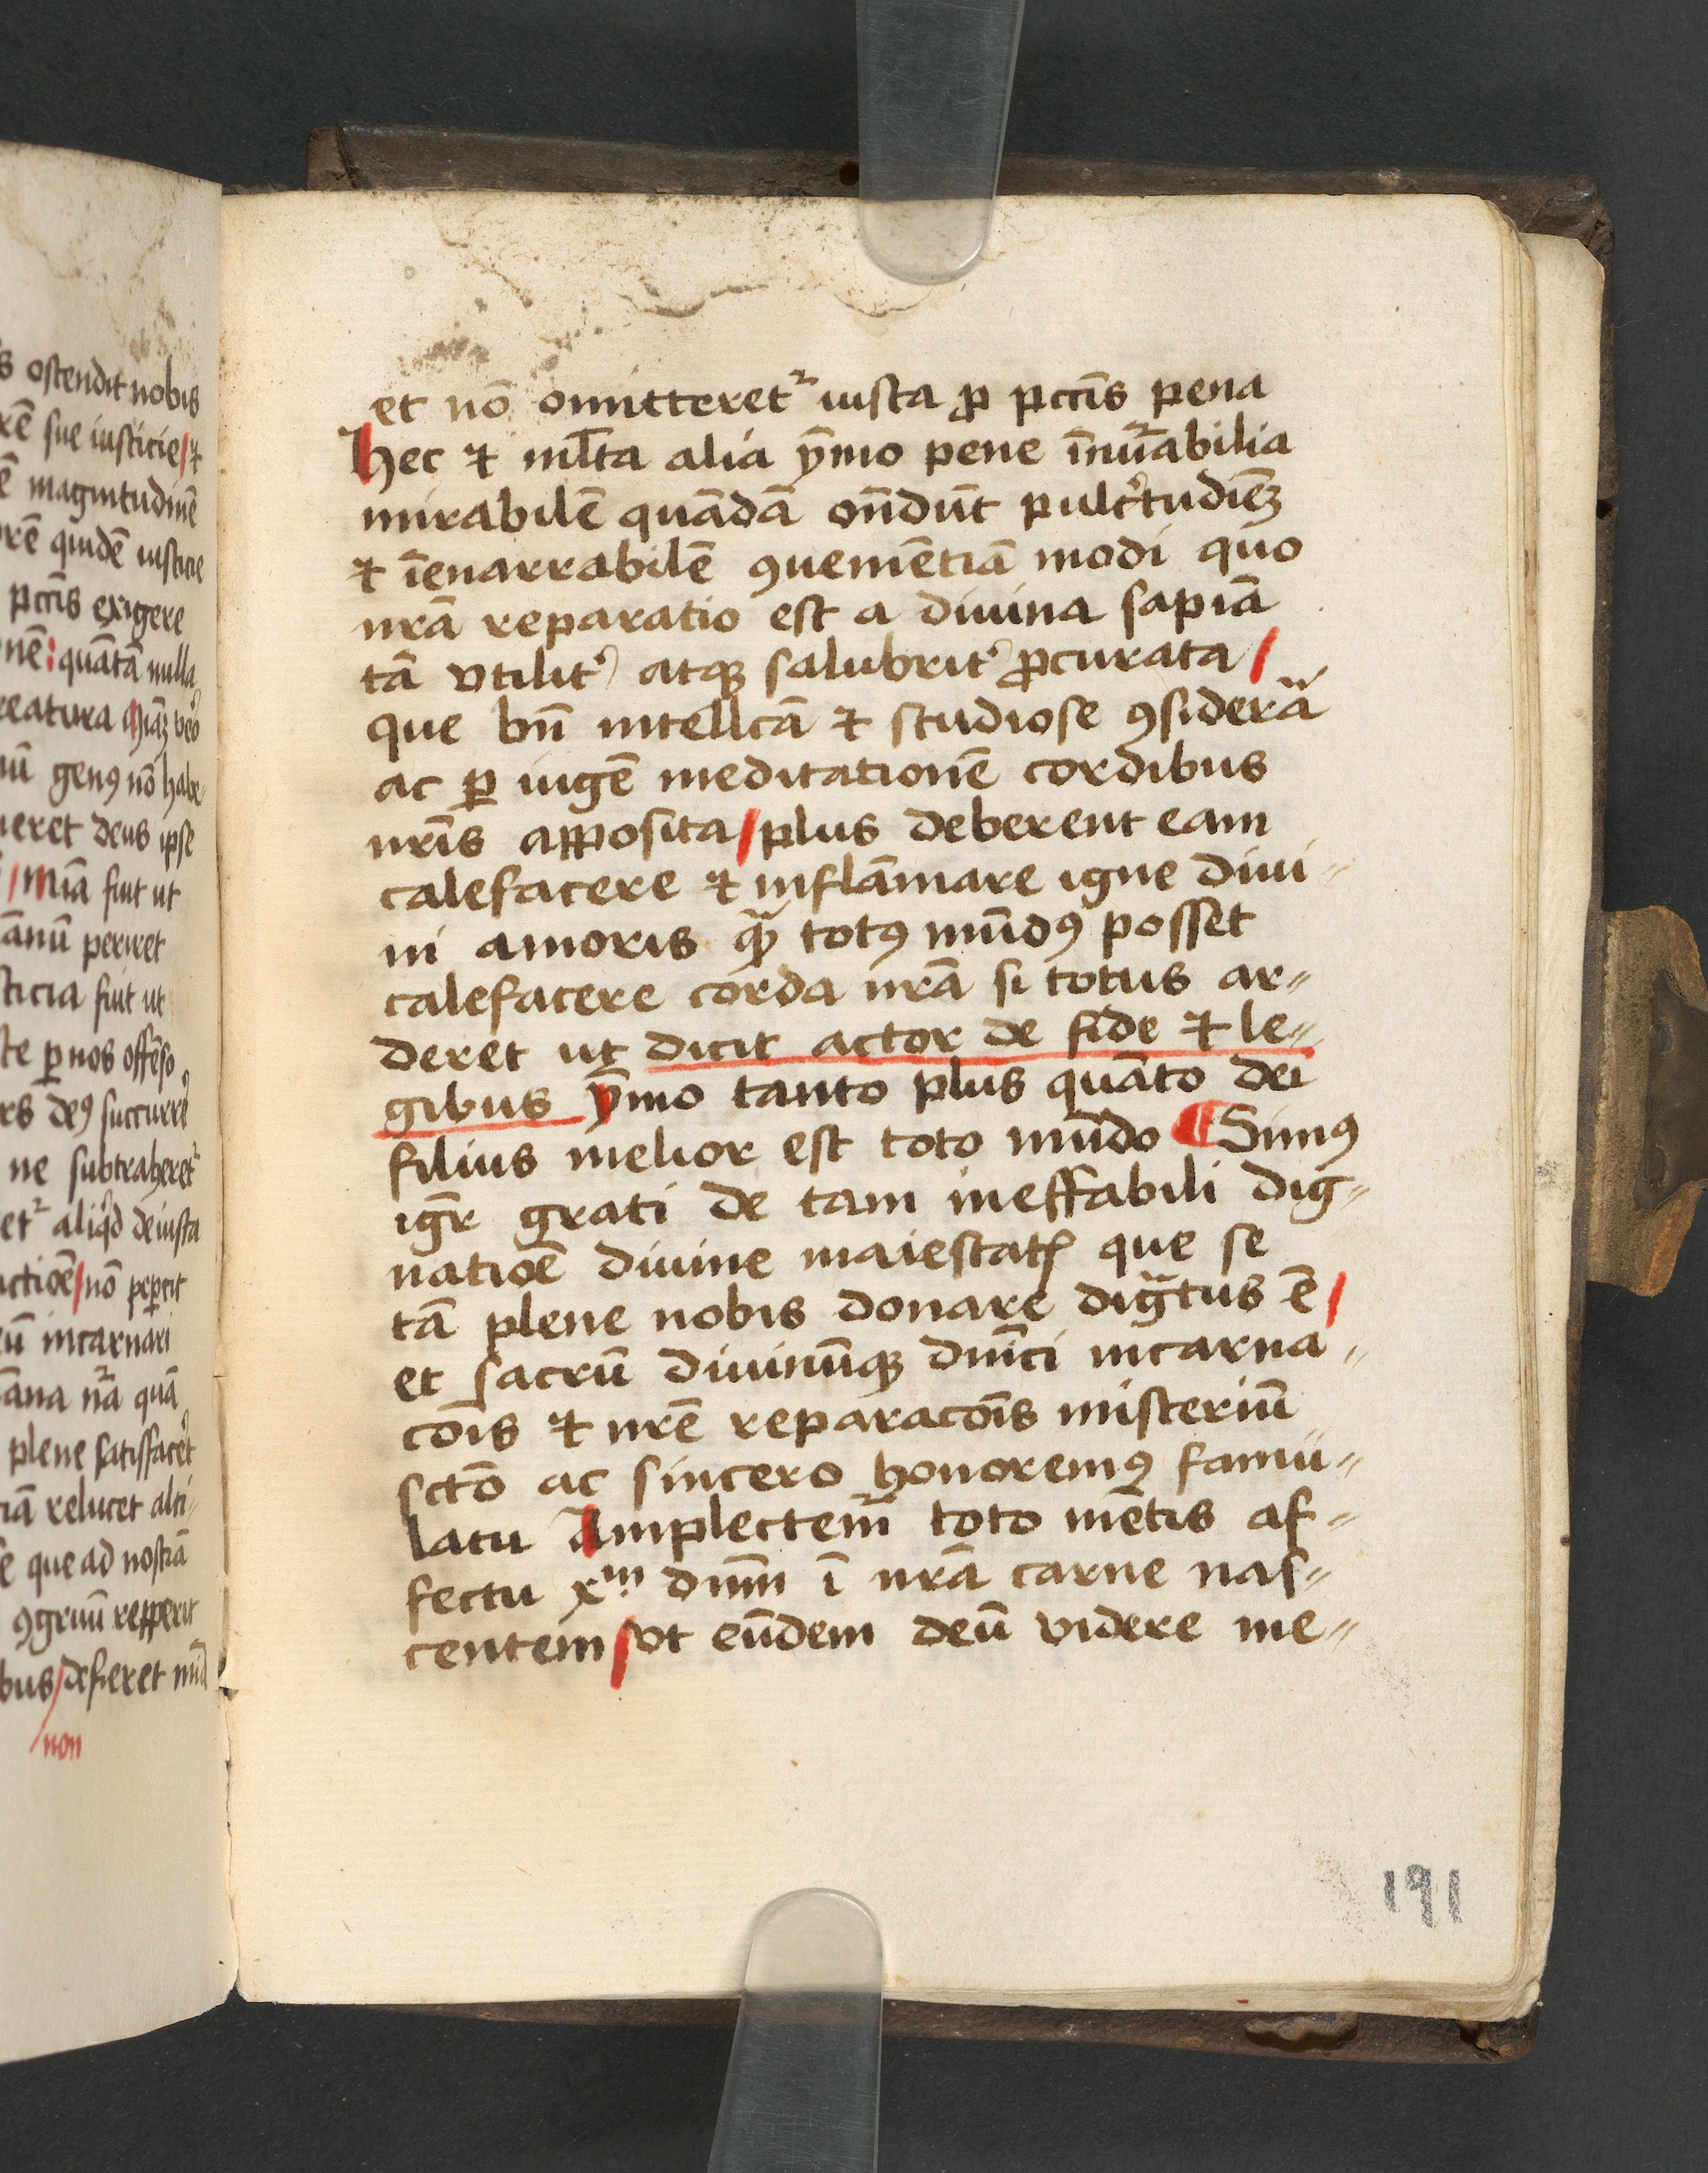 s ostendit nobis
rē sue iusticie / ⁊
ē magnitudinē
rē quidē iusticie
pctīs exigere
nē : quātā nulla
reatura
nū genꝯ nō habe
neret deus ipse
/ Mīa fuit ut
ānū periret
sticia fuit ut
ste ꝑ nos offēso
rs deꝯ succurre
ne subtraheret᷑
et᷑ aliqͥd de iusta
actiōē / nō peꝑcit
eū incarnari
āna nr̄a quā
plene satisfacet
ciā relucet alti
e que ad nostrā
ꝯgruū repperit
bus / defieret
/ non
et nō omitteret᷑ iusta ꝓ pctīs pena
Hec ⁊ ml̄ta alia ȳmo pene īnūabilia
mirabilē quādā on̄dūt pulcͬtudīeꝫ
⁊ īenarrabilē ꝯueniētiā modi quo
nrā reparatio est a diuina sapiā
tā vtilitʾ atqꝫ salubritʾ ꝓcurata /
que bn̄ intellcā ⁊ studiose ꝯsiderā
ac ꝑ iugē meditationē cordibus
nrīs apposita / plus deberent eam
calefacere ⁊ inflāmare igne diui-
ni amoris qͣꝫ totꝯ mūdꝯ posset
calefacere corda nrā si totus ar-
deret ut dicit actor de fide ⁊ le-
gibus ȳmo tanto plus quāto dei
filius melior est toto mūdo ¶ Simꝯ
igr̄ grati de tam ineffabili dig-
natiōē diuine maiestatꝭ que se
tā plene nobis donare digͣtus ē /
et sacrū diuinūqꝫ dn̄ici incarna-
cōis ⁊ nrē reparacōis misteriū
sctō ac sincero honoremꝯ famu-
latu Amplectem᷑ toto mētis af-
fectu xᵐ dn̄m ī nrā carne nas-
centem / vt eūdem deū videre me-
191